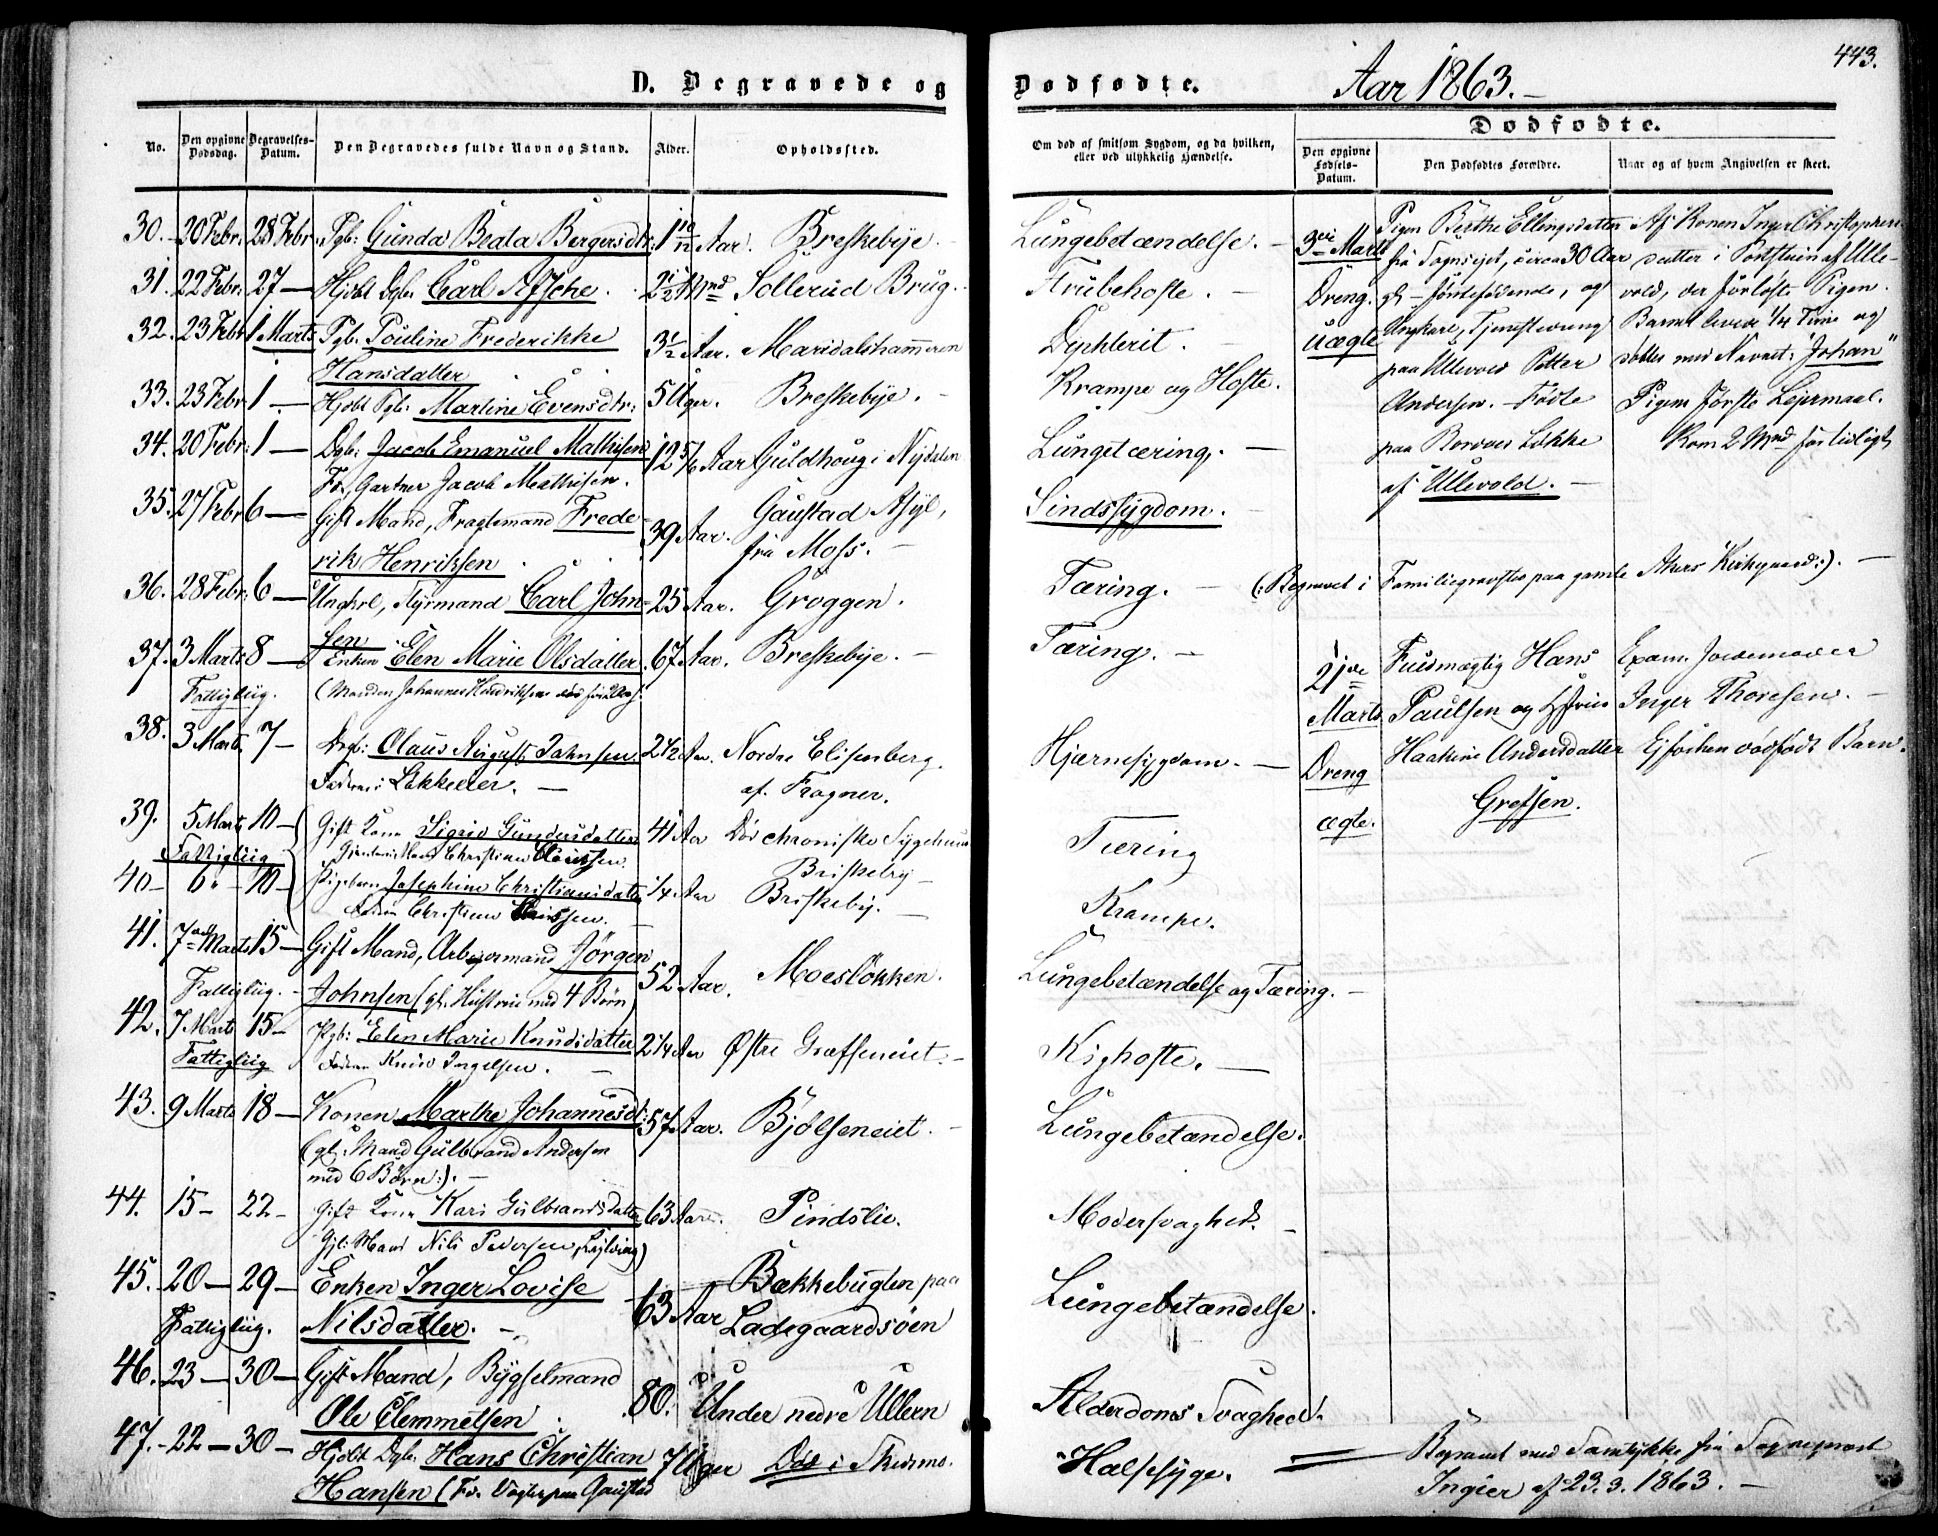 443.
D. Begravede og Dødfødte. Aar 1863.
No. Den opgivne Dødsdag. Begravelses-Datum. Den Begravedes fulde Navn og Stand. Alder. Opholdssted.
Om død af smitsom Sygdom, og da hvilken, eller ved ulykkelig Hændelse.
Dødfødte.
Den opgivne Fødsels-Datum. Den Dødfødtes Forældre. Naar og af hvem Angivelsen er skeet.
30. 20 Febr: 28 Febr. Pgb: Gunda Beata Bergersdtr: 1 10/12 Aar. Breskebye. Lungebetændelse.
31. 22 Febr: 27 — Hjdbt Dgb: Carl 2 1/2 Mnd Sollerud Brug. Strubehoste.
32. 23 Febr 1 Marts Pgb. Pouline Frederikke 3 1/2 Aar. Maridalshammeren Diphterit.
Hansdatter
33. 23 Febr 1 — Hjdbt Pgb: Martine Evensdtr: 5 Uger. Breskebye. Krampe og Hoste.
34. 20 Febr: 1 — Dgb: Jacob Emanuel Mathisen 12 5/6 Aar Guldhoug i Nydalen Lungetæring.
Fa. Gartner Jacob Mathisen.
35. 27 Febr 6 — Gift Mand, Fragtemand Frede- 39 Aar. Gaustad Asyl, Sindssygdom.
rik Henriksen fra Moss.
36. 28 Febr: 6 — Ungkrl, Styrmand Carl John- 25 Aar. Grøggen. Tæring. (: Begravet i Familiegravsted paa gamle Akers Kirkegaard:).
sen
37. 3 Marts 8 — Enken Elen Marie Olsdatter 67 Aar. Breskebye. Tæring.
Fattiglig. (Manden Johannes Hendriksen
38. 3 Marts 7 — Drgb: Olaus August Jahnsen 2 1/2 Aar. Nordre Elisenberg Hjærnesygdom.
Faderen: Løkkeeier. af Frogner.
39. 5 Marts 10 — Gift Kone Sigrid Gundersdatter 41 Aar Død chroniske Sygehuus Tæring
Fattiglig Christian Clausen Briskeby
40 — 6 — 10 — Pigebarn Josephine Christiansdatter 1/4 Aar Briskeby. Krampe.
Faderen Christian Clausen.
41. 7 Marts 15 — Gift Mand, Arbejdermand Jørgen 52 Aar. Moesløkken. Lungebetændelse og Tæring.
Fattiglig. Johnsen (gl. Hustrue med 4 Børn)
42. 7 Marts 15 — Pgb: Elen Marie Knudsdatter 2 1/4 Aar Østre Græfseneiet. Kighoste.
Fattiglig Faderen Knud Ingelsen.
43. 9 Marts 18 — Konen Marthe Johannesdt: 57 Aar. Bjølseneiet. Lungebetændelse.
(gl. Mand Gulbrand Andersen
med 6 Børn:).
44. 15 — 22 — Gift Kone Kari Gulbrandsdatter 63 Aar. Pindslie. Modersvaghed.
Gjl: Mand Nils Pedersen,
45. 20 — 29 — Enken Inger Lovise 63 Aar Bækkebugten paa Lungebetændelse.
Fattiglig. Nilsdatter. Ladegaardsøen
46. 23 — 30 — Gift Mand, Bygselmand 80. Under nedre Ullern Alderdoms Svaghed.
Ole Clemmetsen
47. 22 — 30 — Hjdbt Dgb: Hans Christian 7 Uger Død i Halssyge. Begravet med Samtykke fra Sogneprest
Hansen (Fa. Vogter paa Gaustad Ingier af 23.3.1863.
3die Marts Dreng. uægte
Pigen Berthe Ellingsdatter
fra circa 30 Aar
gl — førstefødende, og
Ungkarl, Tjenestedreng
paa Ullevold Petter
Andersen. — Fødte
paa Løkke
af Ullevold.
Af Konen Inger Christophers-
datter i Portstuen af Ulle-
vold, der forløste Pigen.
Barnet levede 1/4 Time og
døbtes med Navnet: "Johan"
Pigens første Lejermaal.
Kom 2 Mnd for tidligt
21de Marts Dreng ægte.
Fuldmægtig Hans
Paulsen og Hustrue
Haakine Andersdatter
Grefsen.
Exam. Jordemoder
Inger Thoresen.
Ej for hen dødfødt Barn.